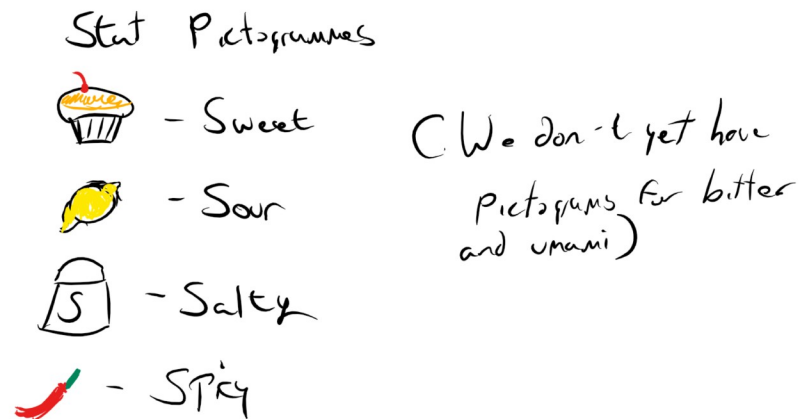 Stat Pictogrammes
- Sweet
- Sour
S - Salty
- Spicy
(We don't yet have
pictograms for bitter
and umami)